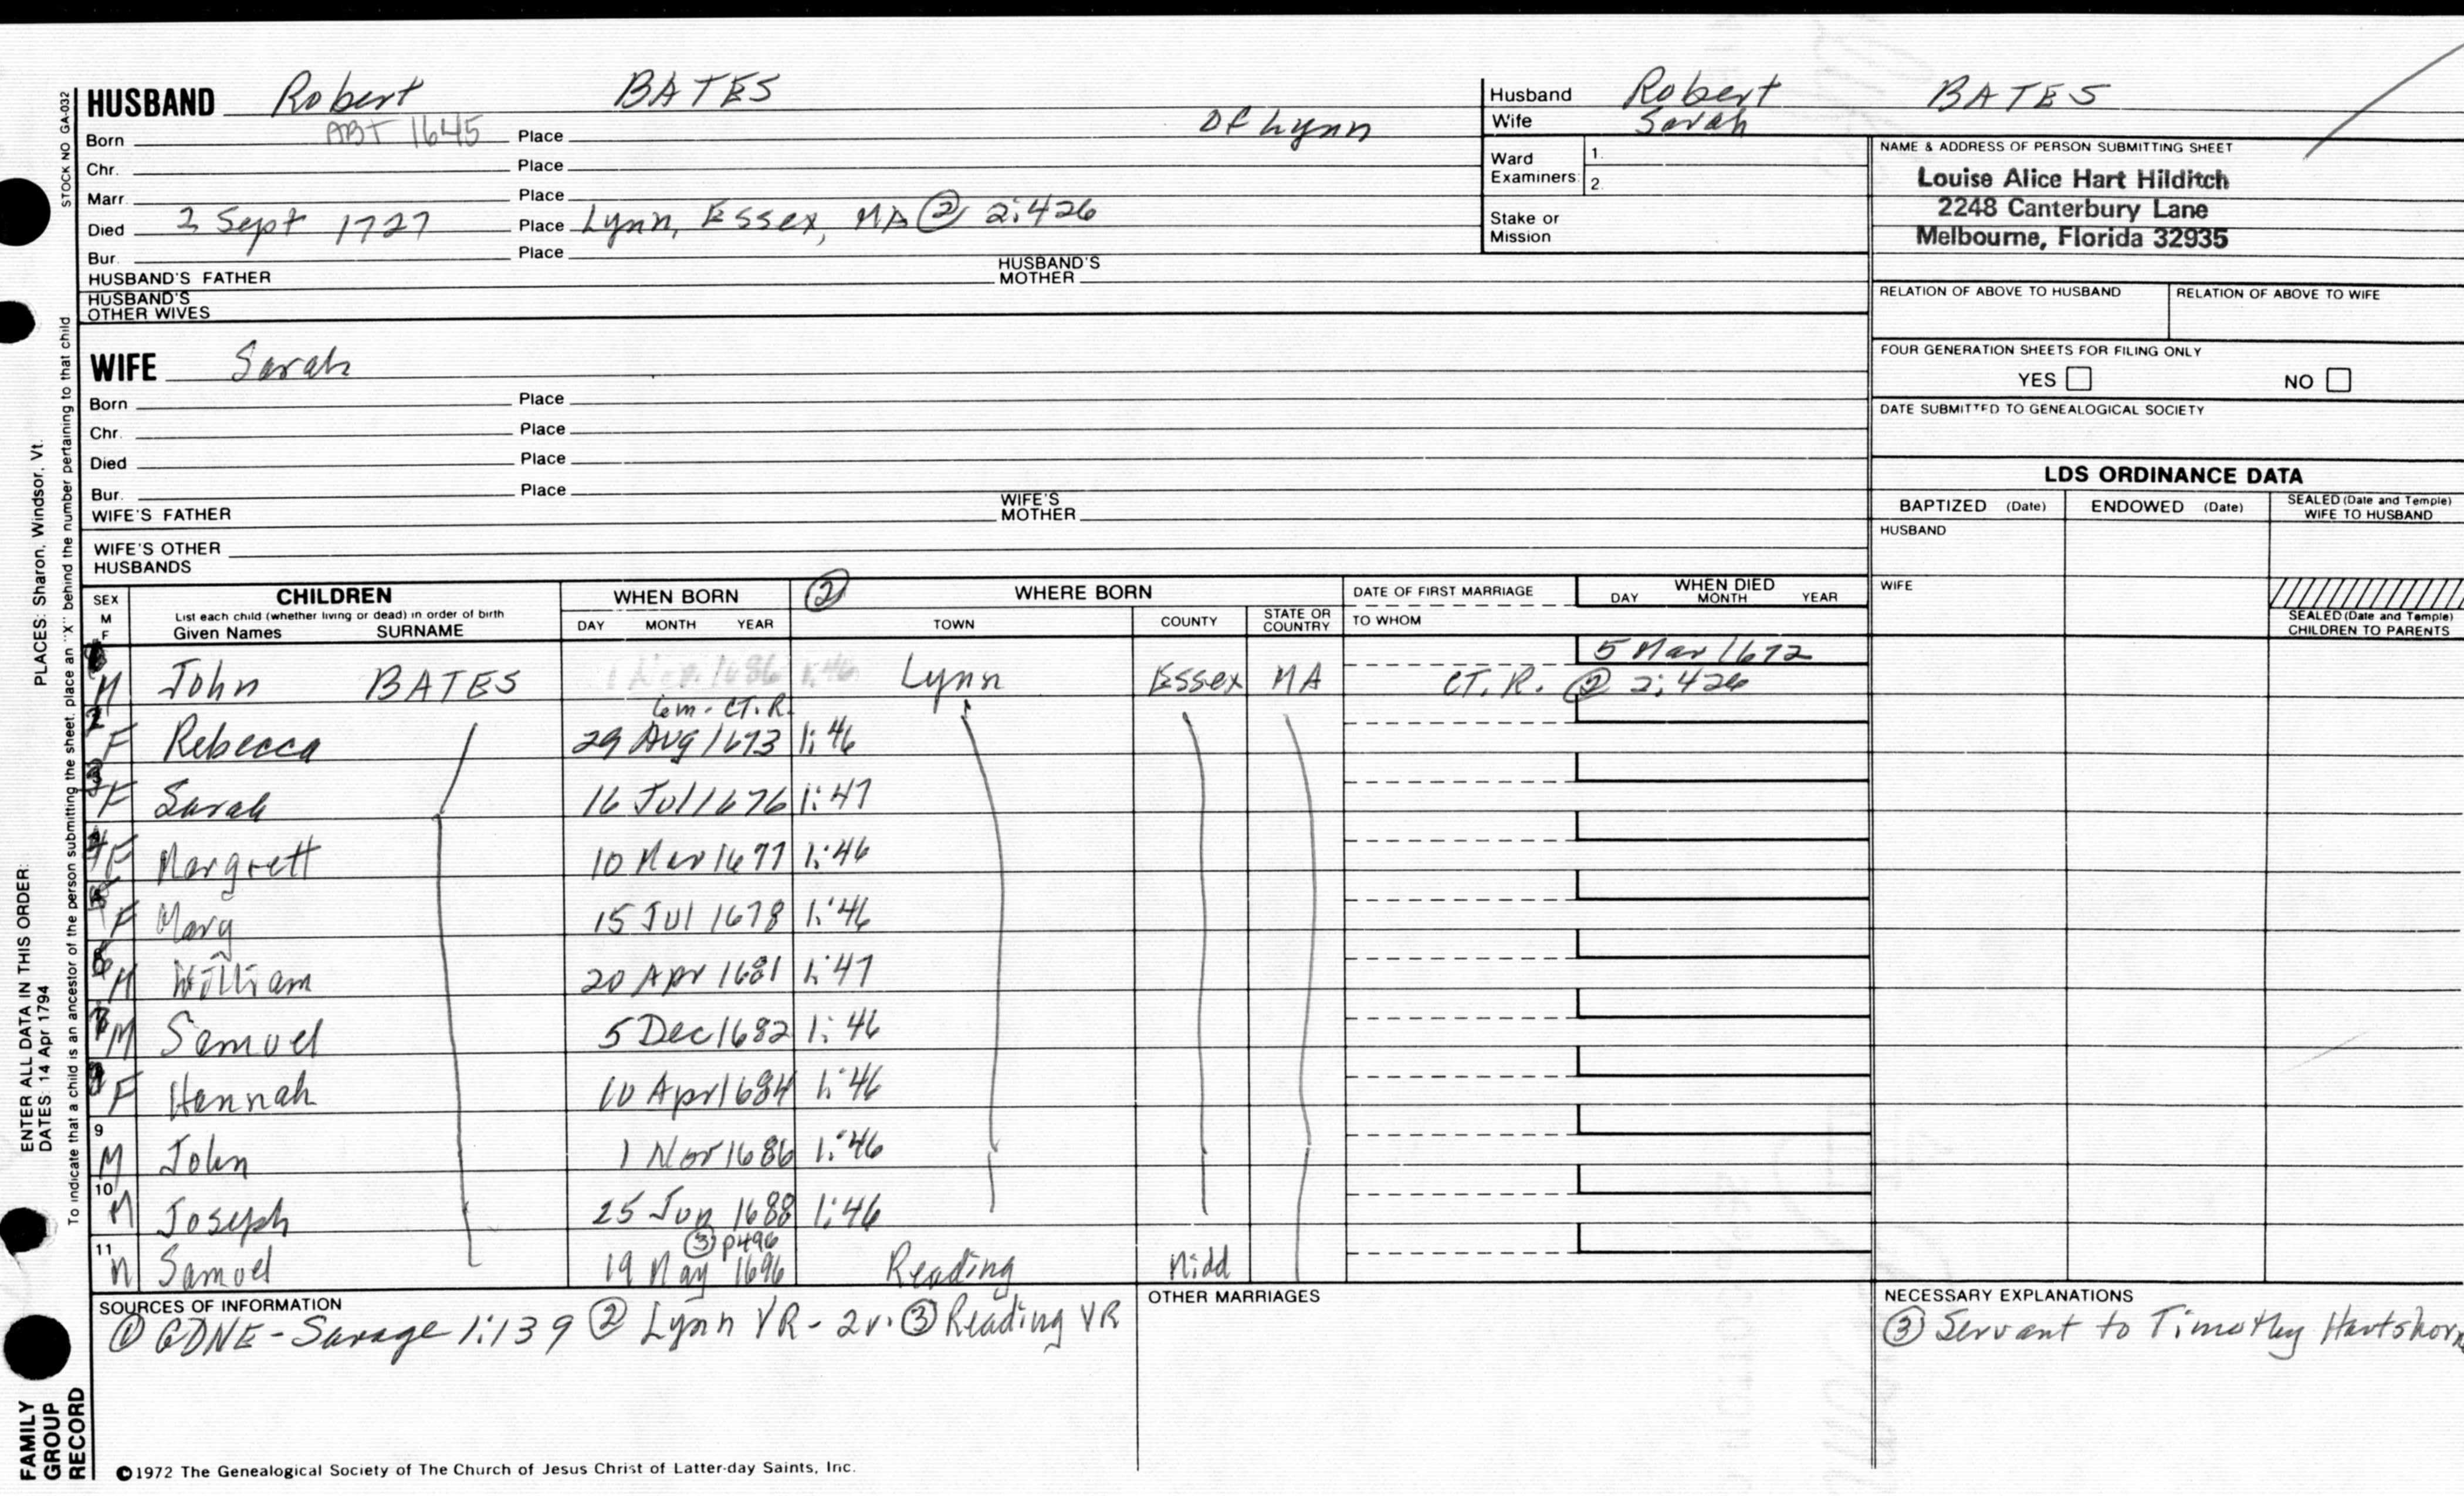 HUSBAND Robert BATES
Born ABT 1645 Place Of Lynn
Chr. Place
Marr. Place
Died 2 Sept 1727 Place Lynn, Essex, MA ② 2:426
Bur. Place
HUSBAND'S FATHER HUSBAND'S MOTHER
HUSBAND'S OTHER WIVES
WIFE Sarah
Born Place
Chr. Place
Died Place
Bur. Place
WIFE'S FATHER WIFE'S MOTHER
WIFE'S OTHER HUSBANDS
Husband Robert BATES
Wife Sarah
Ward Examiners: 1. 2.
Stake or Mission
NAME & ADDRESS OF PERSON SUBMITTING SHEET
Louise Alice Hart Hilditch
2248 Canterbury Lane
Melbourne, Florida 32935
RELATION OF ABOVE TO HUSBAND RELATION OF ABOVE TO WIFE
FOUR GENERATION SHEETS FOR FILING ONLY
YES NO
DATE SUBMITTED TO GENEALOGICAL SOCIETY
LDS ORDINANCE DATA
BAPTIZED (Date) ENDOWED (Date) SEALED (Date and Temple) WIFE TO HUSBAND
HUSBAND
WIFE
SEALED (Date and Temple) CHILDREN TO PARENTS
SEX M F CHILDREN WHEN BORN ② WHERE BORN DATE OF FIRST MARRIAGE WHEN DIED
List each child (whether living or dead) in order of birth
Given Names SURNAME DAY MONTH YEAR TOWN COUNTY STATE OR COUNTRY TO WHOM DAY MONTH YEAR
5 Mar 1672
M John BATES 1 Nov. 1686 1:46 Lynn Essex MA CT. R. ② 2:426
6m. CT. R.
2 F Rebecca 29 Aug 1673 1:46
3 F Sarah 16 Jul 1676 1:47
4 F Margrett 10 Mar 1677 1:46
5 F Mary 15 Jul 1678 1:46
6 M William 20 Apr 1681 1:47
7 M Samuel 5 Dec 1682 1:46
F Hannah 10 Apr 1684 1:46
9 M John 1 Nov 1686 1:46
10 M Joseph 25 Jun 1688 1:46
③ p496
11 M Samuel 19 May 1696 Reading Midd
SOURCES OF INFORMATION
① GDNE - Savage 1:139 ② Lynn VR - 2v. ③ Reading VR
OTHER MARRIAGES
NECESSARY EXPLANATIONS
③ Servant to Timothy Hartshorn
©1972 The Genealogical Society of The Church of Jesus Christ of Latter-day Saints, Inc.
STOCK NO GA-032
To indicate that a child is an ancestor of the person submitting the sheet, place an "X" behind the number pertaining to that child
PLACES: Sharon, Windsor, Vt.
ENTER ALL DATA IN THIS ORDER:
DATES: 14 Apr 1794
FAMILY GROUP RECORD